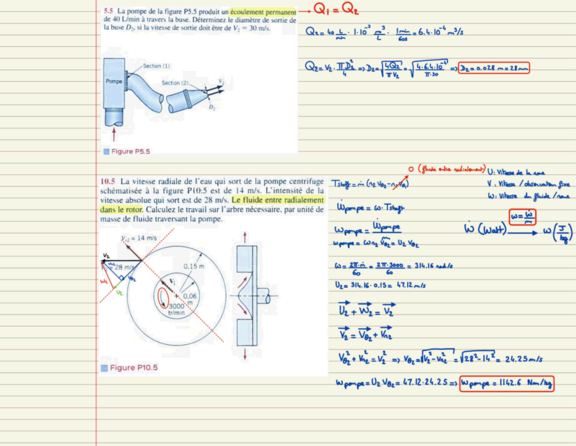 5.5 La pompe de la figure P5.5 produit un écoulement permanent
de 40 L/min à travers la buse. Déterminez le diamètre de sortie de
la buse D₂, si la vitesse de sortie doit être de V₂ = 30 m/s.
→ Q₁ = Q₂
Q₂ = 40 L/min · 1·10⁻³ m³/L · 1min/60s = 6.4·10⁻⁴ m³/s
Q₂ = V₂ · πD₂²/4 ⇒ D₂ = √(4Q₂/πV₂) = √(4·6.4·10⁻⁴/π·30) ⇒ D₂ = 0.028 m = 28mm
Section (1)
Section (2)
Pompe
V₂
D₂
Figure P5.5
10.5 La vitesse radiale de l'eau qui sort de la pompe centrifuge
schématisée à la figure P10.5 est de 14 m/s. L'intensité de la
vitesse absolue qui sort est de 28 m/s. Le fluide entre radialement
dans le rotor. Calculez le travail sur l'arbre nécessaire, par unité de
masse de fluide traversant la pompe.
Vr2 = 14 m/s
V₂
28 m/s
W₂
U₂
0,15 m
V₁
0,06
m
3000
tr/min
Figure P10.5
0 (fluide entre radialement)
U: Vitesse de la roue
V: Vitesse / observateur fixe
W: Vitesse du fluide / roue
Ẇpompe = ω · Tshaft
wpompe = Ẇpompe/ṁ
wpompe = ωr₂ Vθ₂ = U₂ Vθ₂
w = Ẇ/ṁ
Ẇ (Watt) → w (J/kg)
ω = 2π·n/60 = 2π·3000/60 = 314.16 rad/s
U₂ = 314.16 · 0.15 = 47.12 m/s
U₂ + W₂ = V₂
V₂ = Vθ₂ + Vr₂
Vθ₂² + Vr₂² = V₂² ⇒ Vθ₂ = √(V₂² - Vr₂²) = √(28² - 14²) = 24.25 m/s
wpompe = U₂ Vθ₂ = 47.12 · 24.25 ⇒ wpompe = 1142.6 Nm/kg